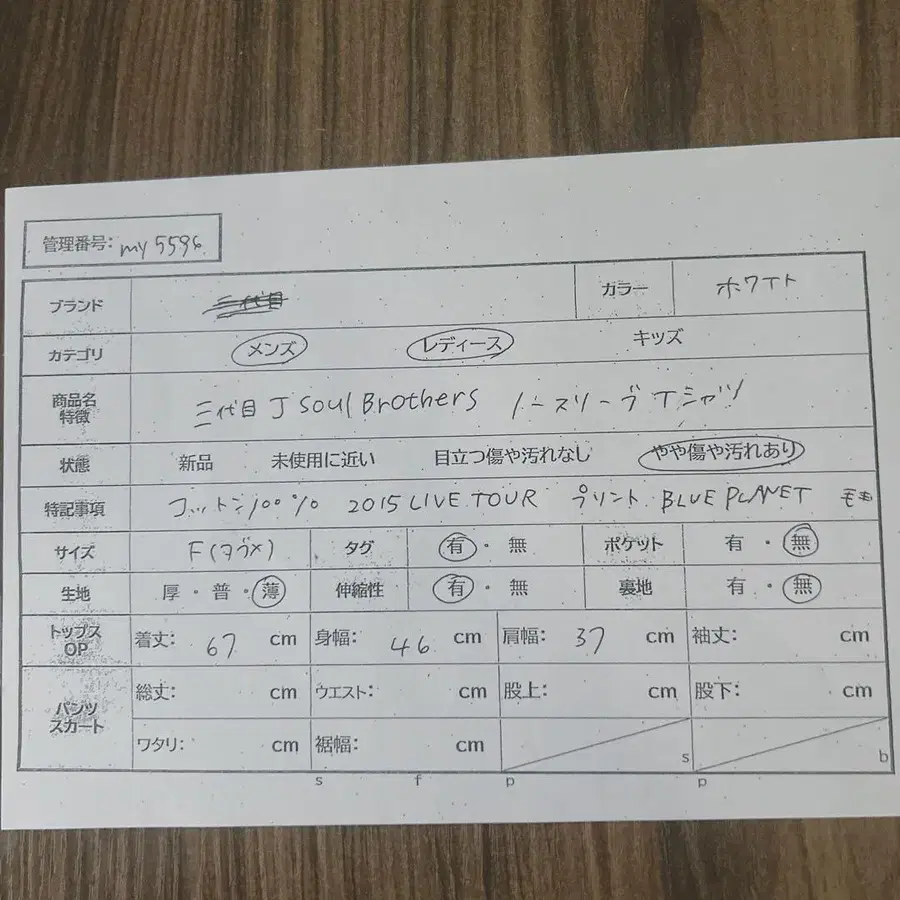 管理番号: my 5596
ブランド カラー ホワイト
カテゴリ メンズ レディース キッズ
商品名 特徴 三代目 J Soul Brothers ノースリーブ Tシャツ
状態 新品 未使用に近い 目立つ傷や汚れなし やや傷や汚れあり
特記事項 コットン100% 2015 LIVE TOUR プリント BLUE PLANET
サイズ F(タグ×) タグ 有・無 ポケット 有・無
生地 厚・普・薄 伸縮性 有・無 裏地 有・無
トップス OP 着丈: 67 cm 身幅: 46 cm 肩幅: 37 cm 袖丈: cm
パンツ スカート 総丈: cm ウエスト: cm 股上: cm 股下: cm
ワタリ: cm 裾幅: cm s b
s f p p